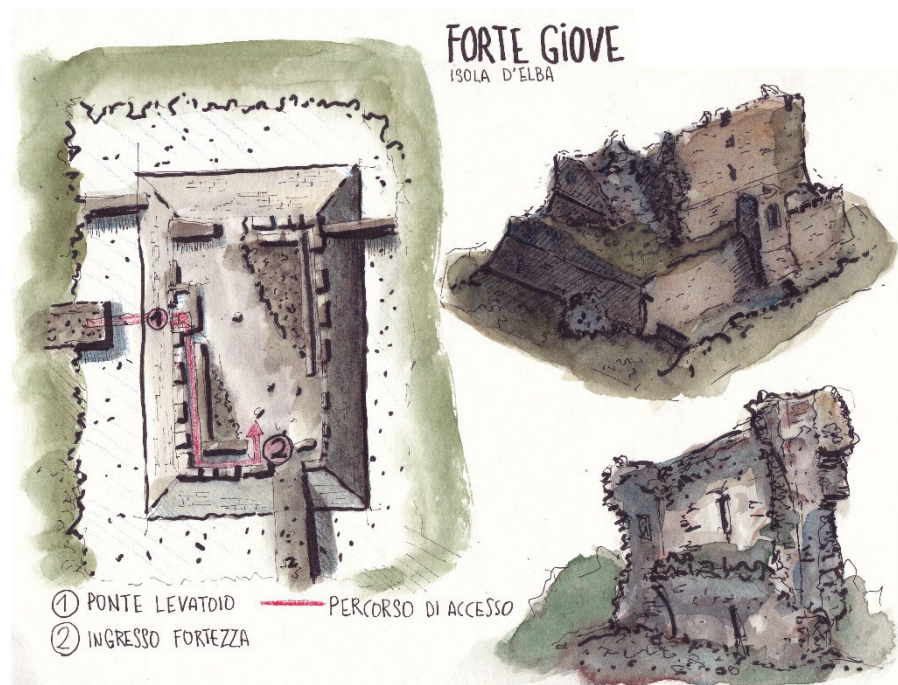 FORTE GIOVE
ISOLA D'ELBA
1
2
1 PONTE LEVATOIO
PERCORSO DI ACCESSO
2 INGRESSO FORTEZZA